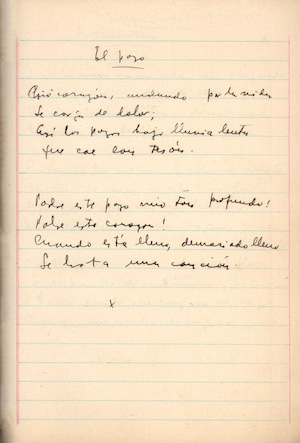 El pozo
Así corazón, andando por la vida
Se carga de dolor;
Así los pozos bajo lluvia lenta
que cae con tesón.
Pobre este pozo mío tan profundo!
Pobre este corazón!
Cuando está lleno, demasiado lleno
Se brota una canción.
x